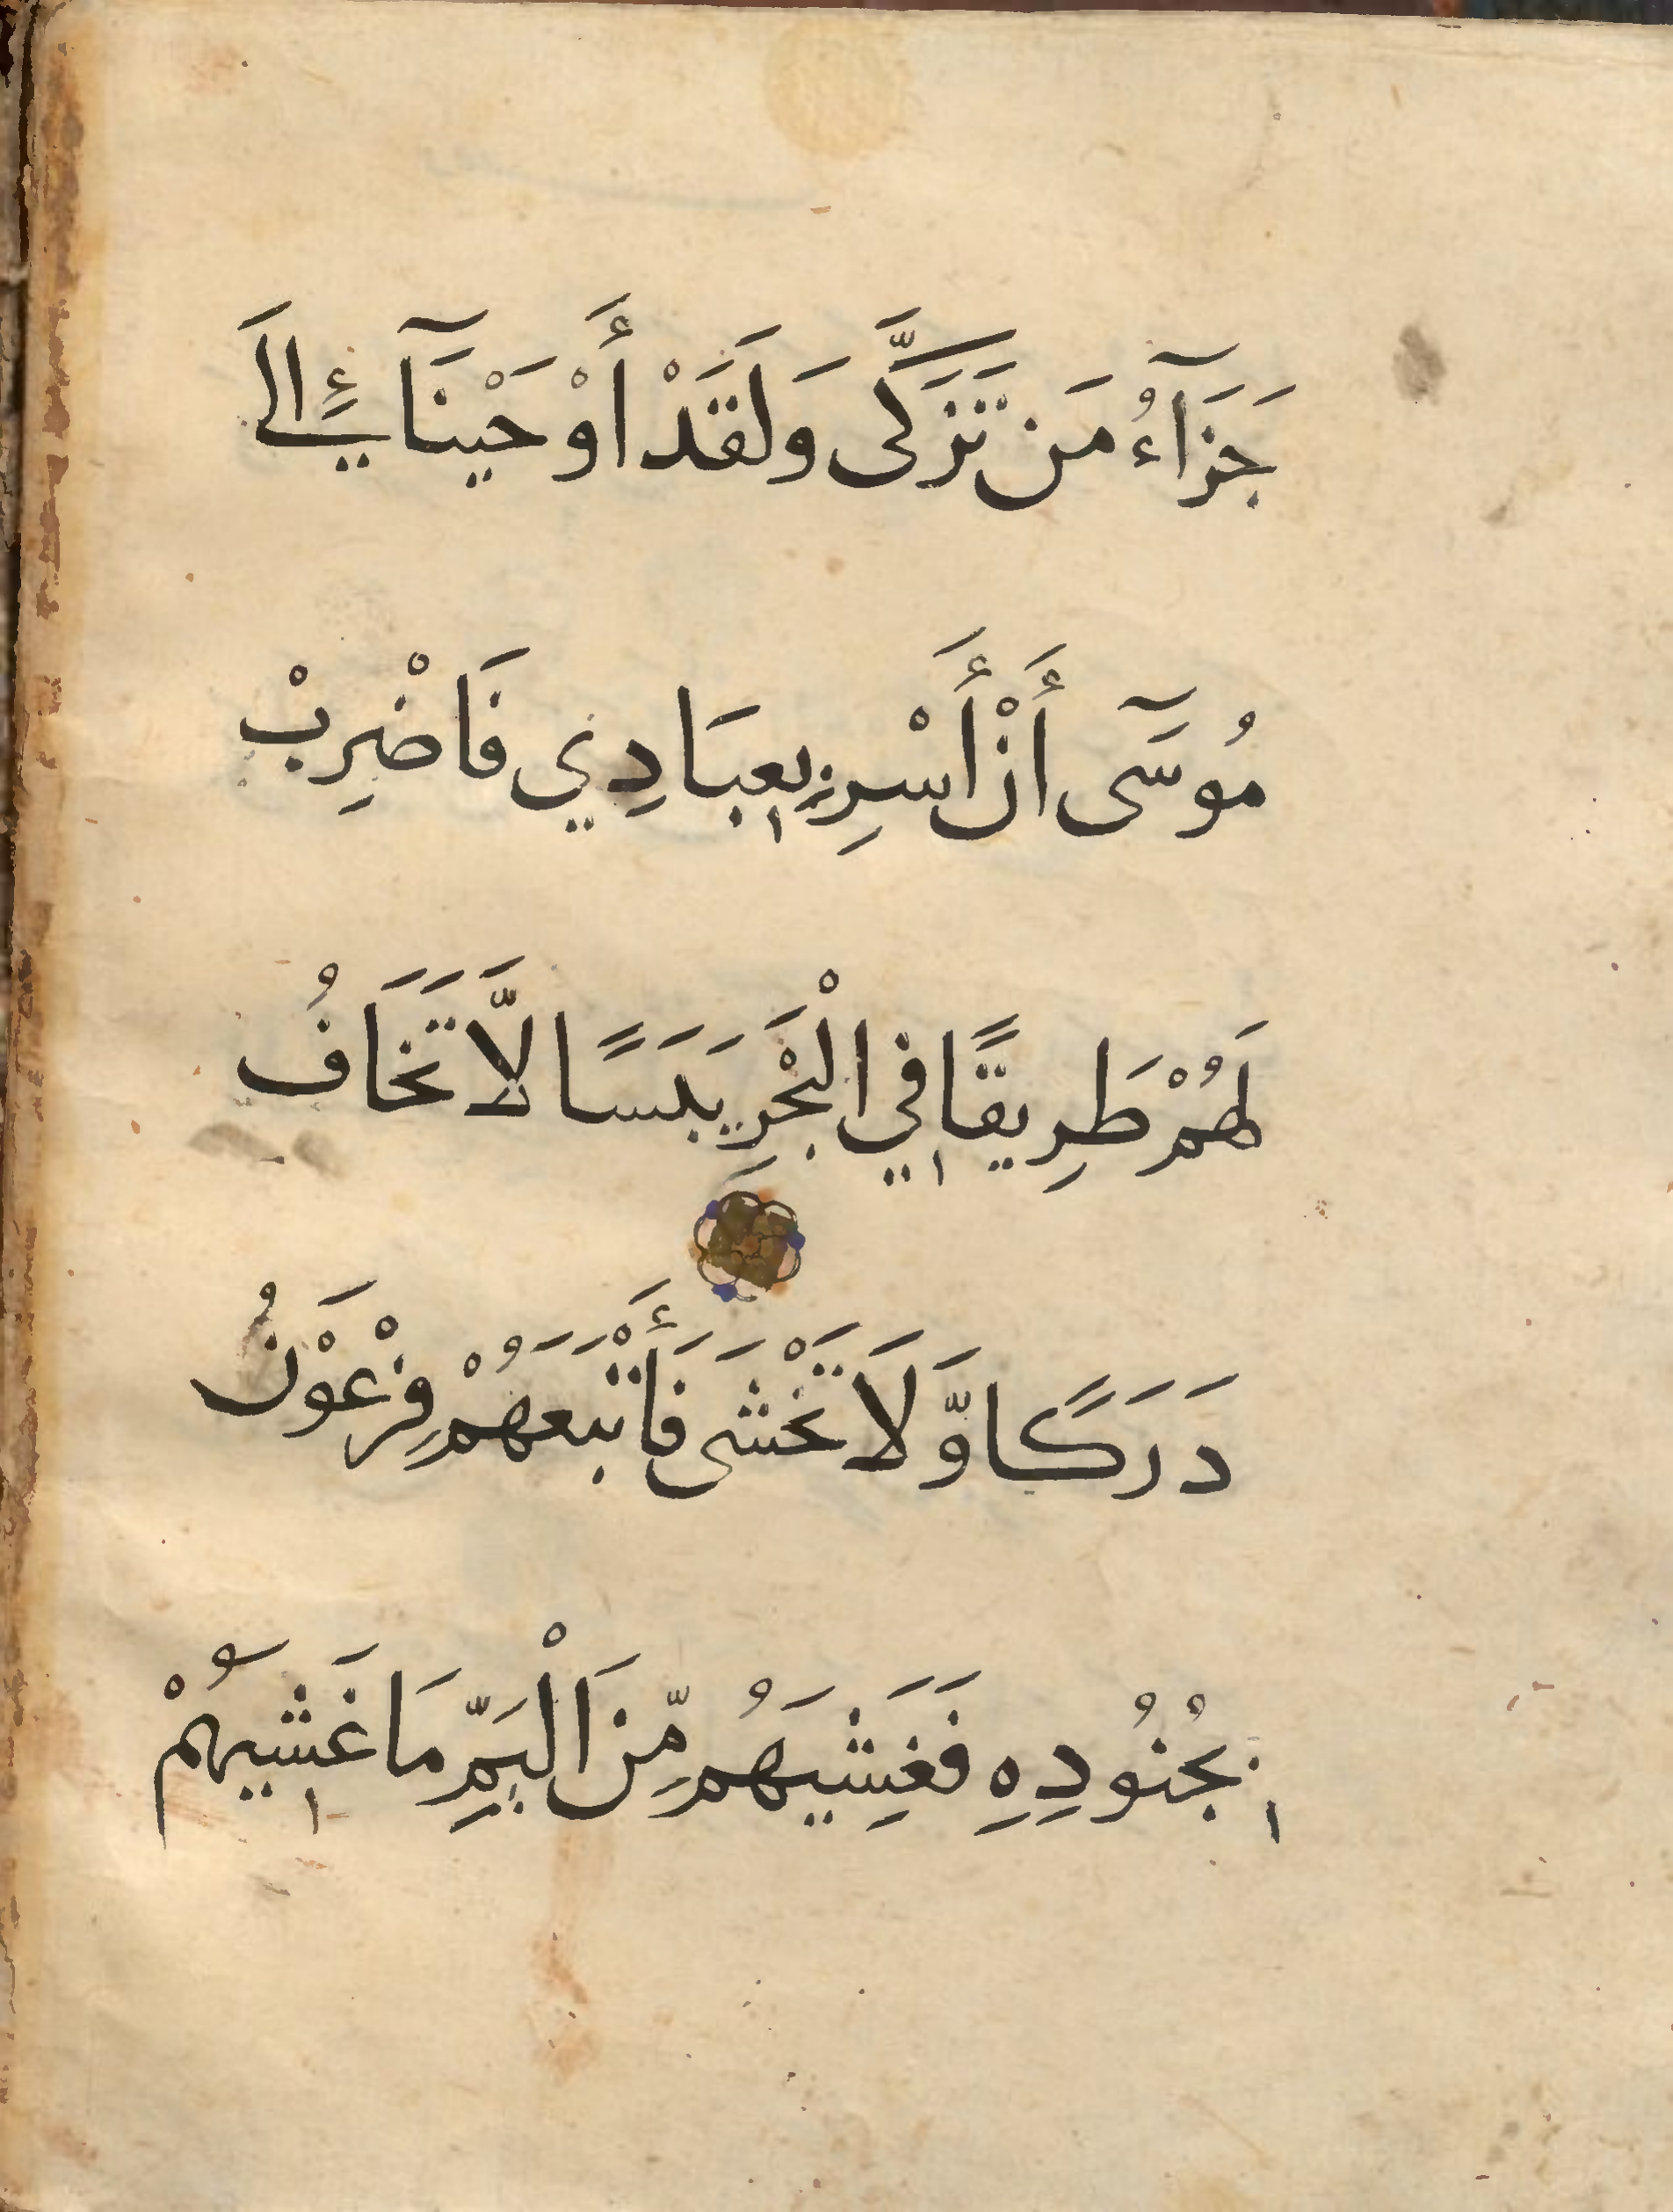 جَزَآءُ مَن تَزَكَّى وَلَقَدْ أَوْحَيْنَآ إِلَى
مُوسَى أَنْ أَسْرِ بِعِبَادِي فَاضْرِبْ
لَهُمْ طَرِيقًا فِي الْبَحْرِ يَبَسًا لَّا تَخَافُ
دَرَكًا وَّلَا تَخْشَى فَأَتْبَعَهُمْ فِرْعَوْنُ
بِجُنُودِهِ فَغَشِيَهُم مِّنَ الْيَمِّ مَا غَشِيَهُمْ